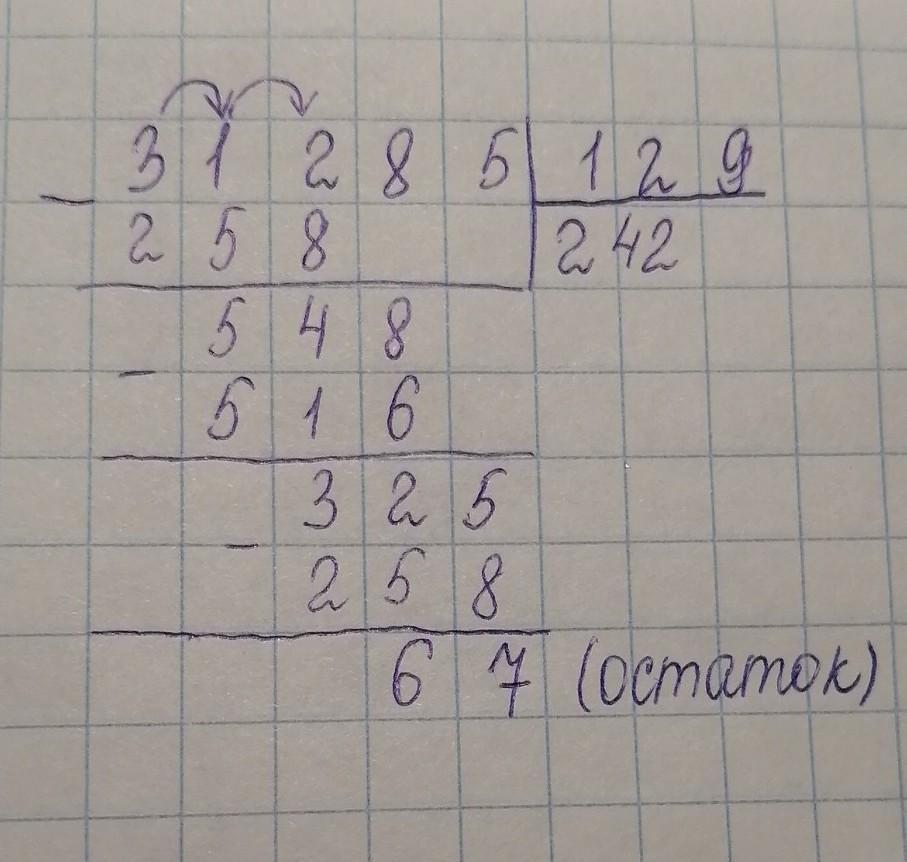 31285 129
- 258 242
548
- 516
325
- 258
67 (остаток)